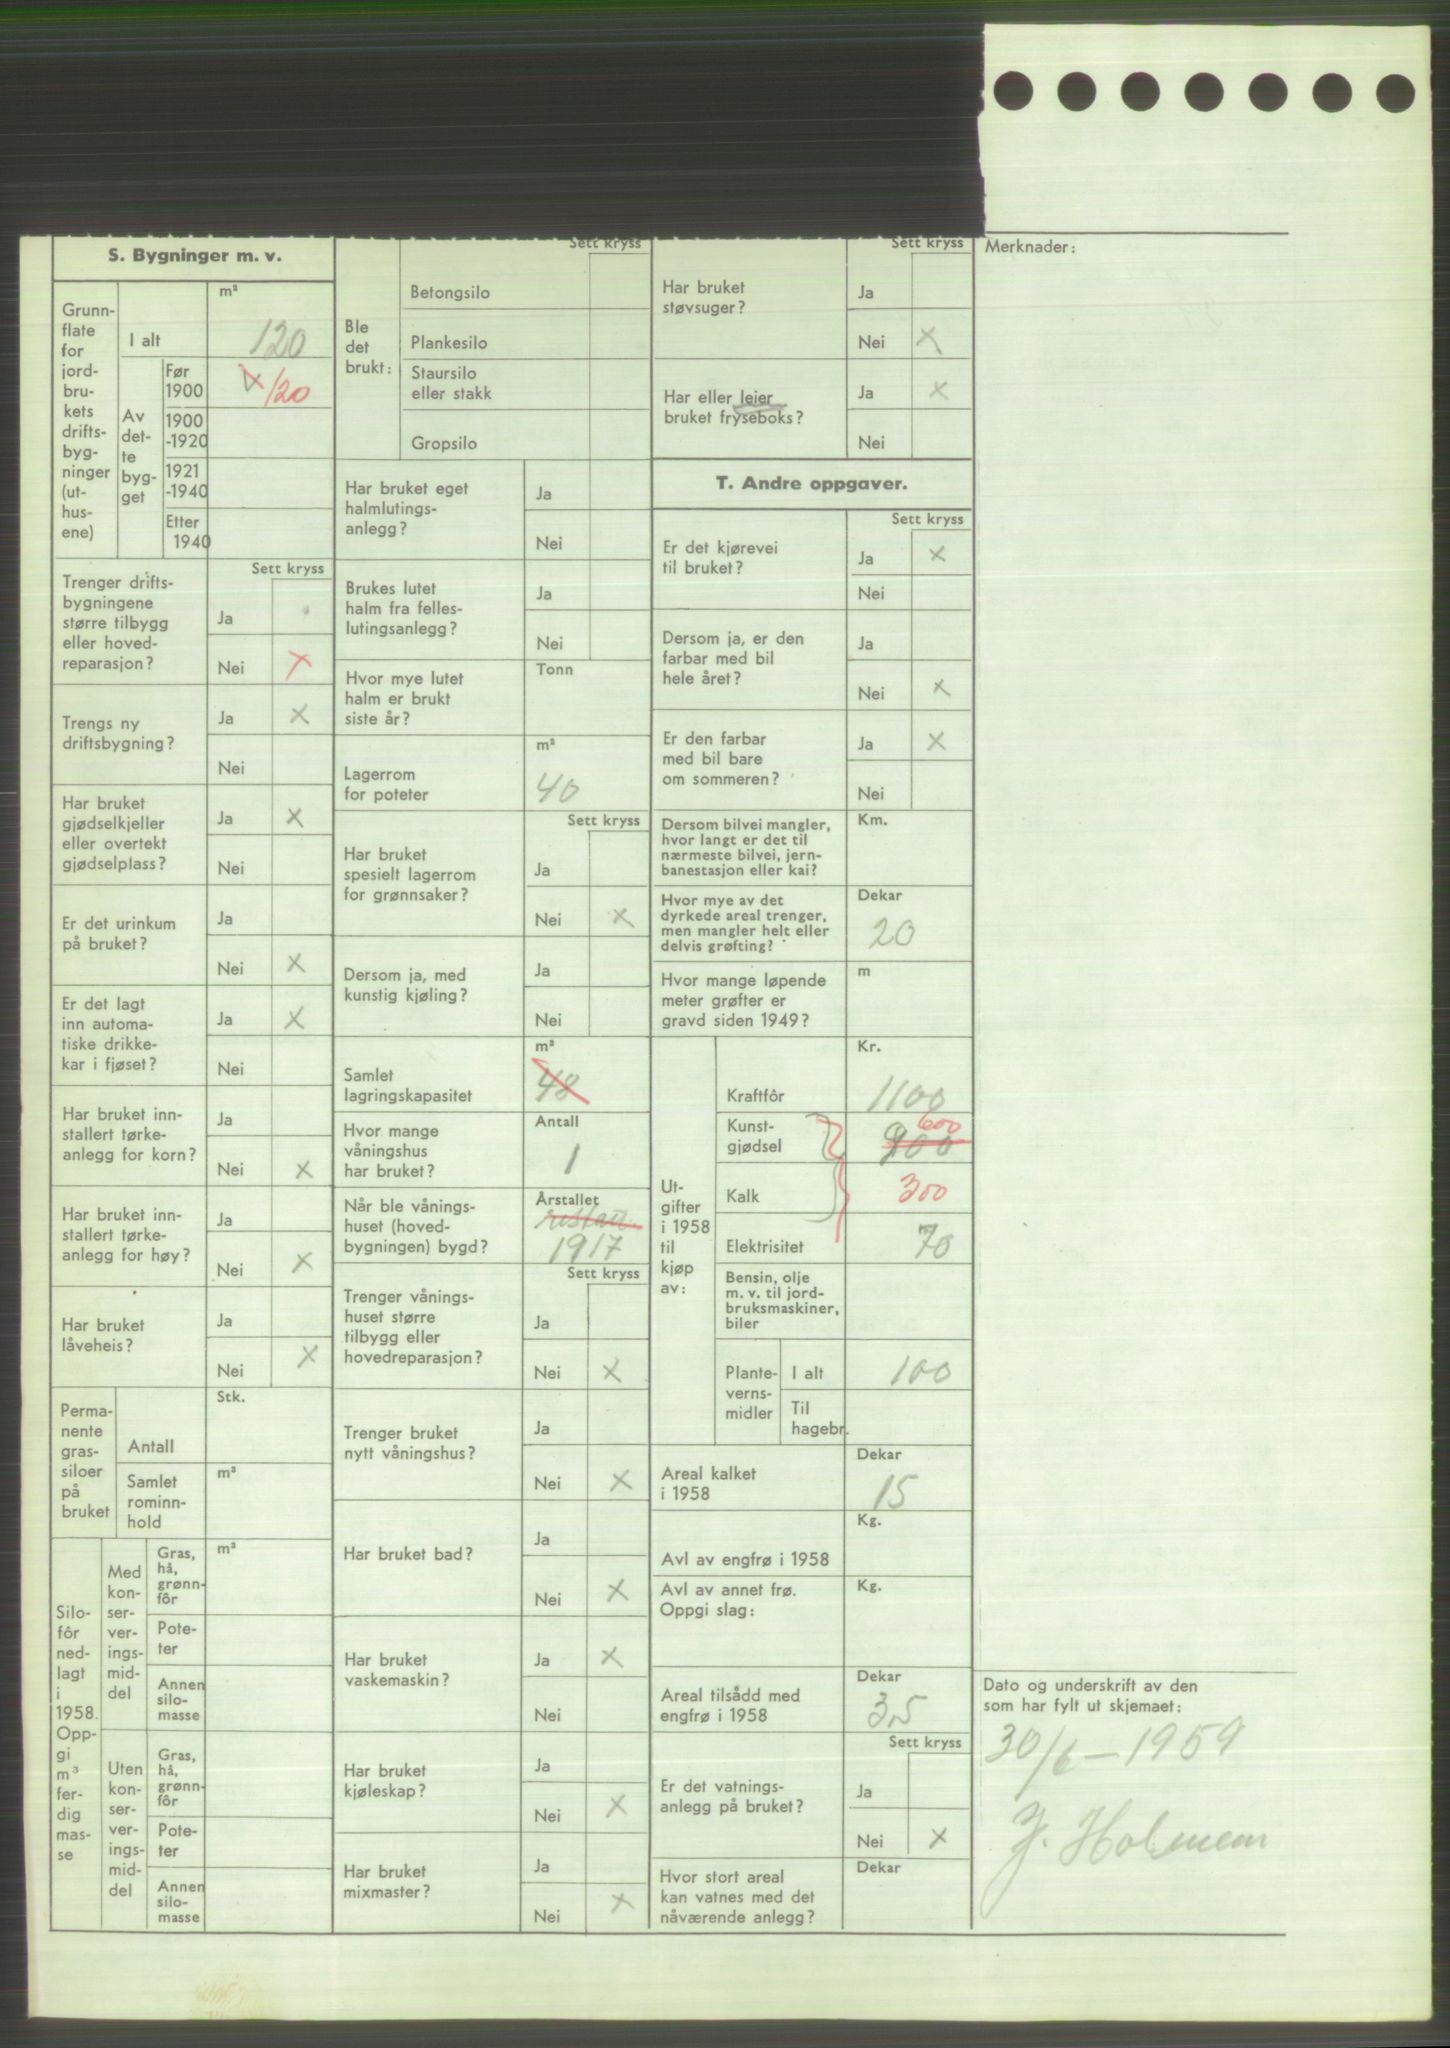 S. Bygninger m. v.
Grunn-
flate
for
jord-
bru-
kets
drifts-
byg-
ninger
(ut-
hus-
ene)
m²
I alt
120
Av
det-
te
byg-
get
Før
1900
x 120
1900
-1920
1921
-1940
Etter
1940
Sett kryss
Trenger drifts-
bygningene
større tilbygg
eller hoved-
reparasjon?
Ja
Nei x
Trengs ny
driftsbygning?
Ja x
Nei
Har bruket
gjødselkjeller
eller overtekt
gjødselplass?
Ja x
Nei
Er det urinkum
på bruket?
Ja
Nei x
Er det lagt
inn automa-
tiske drikke-
kar i fjøset?
Ja x
Nei
Har bruket inn-
stallert tørke-
anlegg for korn?
Ja
Nei x
Har bruket inn-
stallert tørke-
anlegg for høy?
Ja
Nei x
Har bruket
låveheis?
Ja
Nei x
Perma-
nente
gras-
siloer
på
bruket
Stk.
Antall
m³
Samlet
rominn-
hold
Silo-
fôr
ned-
lagt
i
1958.
Opp-
gi
m³
fer-
dig
mas-
se
Med
kon-
ser-
ver-
ings-
mid-
del
m³
Gras,
hå,
grønn-
fôr
Pote-
ter
Annen
silo-
masse
Uten
kon-
ser-
ver-
ings-
mid-
del
Gras,
hå,
grønn-
fôr
Pote-
ter
Annen
silo-
masse
Sett kryss
Ble
det
brukt:
Betongsilo
Plankesilo
Staursilo
eller stakk
Gropsilo
Har bruket eget
halmlutings-
anlegg?
Ja
Nei
Brukes lutet
halm fra felles-
lutingsanlegg?
Ja
Nei
Tonn
Hvor mye lutet
halm er brukt
siste år?
m³
Lagerrom
for poteter
40
Sett kryss
Har bruket
spesielt lagerrom
for grønnsaker?
Ja
Nei x
Dersom ja, med
kunstig kjøling?
Ja
Nei
m³
Samlet
lagringskapasitet
48
Hvor mange
våningshus
har bruket?
Antall
1
Når ble vånings-
huset (hoved-
bygningen) bygd?
Årstallet
1917
Sett kryss
Trenger vånings-
huset større
tilbygg eller
hovedreparasjon?
Ja
Nei x
Trenger bruket
nytt våningshus?
Ja
Nei x
Har bruket bad?
Ja
Nei x
Har bruket
vaskemaskin?
Ja x
Nei
Har bruket
kjøleskap?
Ja
Nei x
Har bruket
mixmaster?
Ja
Nei x
Sett kryss
Har bruket
støvsuger?
Ja
Nei x
Har eller leier
bruket fryseboks?
Ja x
Nei
T. Andre oppgaver.
Sett kryss
Er det kjørevei
til bruket?
Ja x
Nei
Dersom ja, er den
farbar med bil
hele året?
Ja
Nei x
Er den farbar
med bil bare
om sommeren?
Ja x
Nei
Dersom bilvei mangler,
hvor langt er det til
nærmeste bilvei, jern-
banestasjon eller kai?
Km.
Hvor mye av det
dyrkede areal trenger,
men mangler helt eller
delvis grøfting?
Dekar
20
Hvor mange løpende
meter grøfter er
gravd siden 1949?
m
Ut-
gifter
i 1958
til
kjøp
av:
Kr.
Kraftfôr
1100
Kunst-
gjødsel
600
900
Kalk
300
Elektrisitet
70
Bensin, olje
m. v. til jord-
bruksmaskiner,
biler
Plante-
verns-
midler
I alt
100
Til
hagebr.
Areal kalket
i 1958
Dekar
15
Avl av engfrø i 1958
Kg.
Avl av annet frø.
Oppgi slag:
Kg.
Areal tilsådd med
engfrø i 1958
Dekar
3,5
Sett kryss
Er det vatnings-
anlegg på bruket?
Ja
Nei x
Hvor stort areal
kan vatnes med det
nåværende anlegg?
Dekar
Merknader:
Dato og underskrift av den
som har fylt ut skjemaet:
30/6 – 1959
J. Holmem